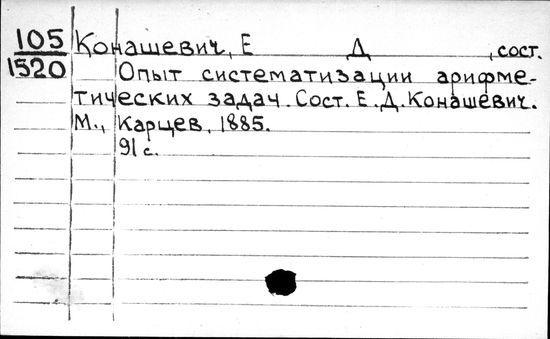 105 Конашевич, Е Д , сост.
1520 Опыт систематизации арифме-
тических задач. Сост. Е.Д. Конашевич.
М., Карцев, 1885.
91 с.